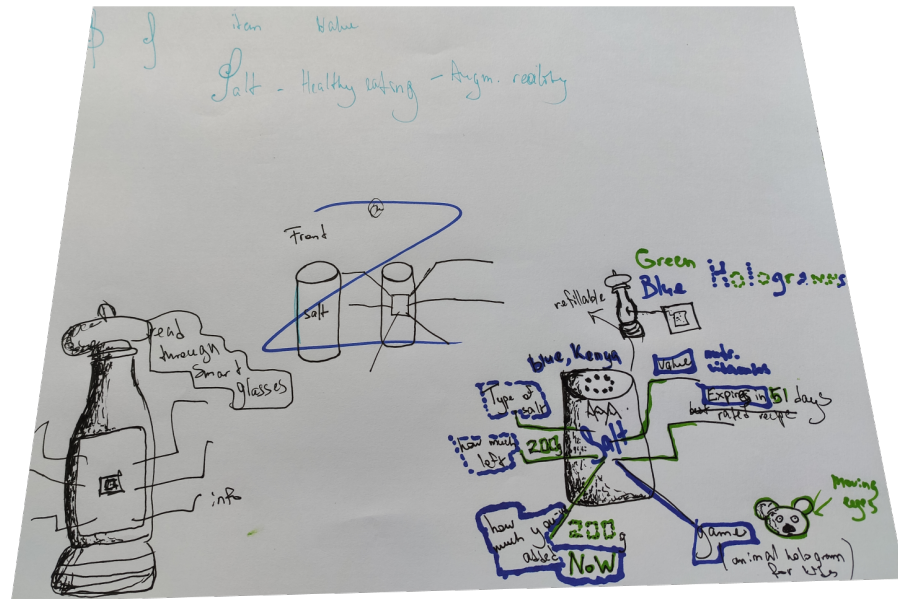 item value
Salt - Healthy eating - Augm. reality
Front
salt
read
through
smart
glasses
info
Green
Blue
Holograms
refillable
blue, Kenya
value
nutr.
vitamins
Type of
salt
Expires in 51 days
best rated recipe
how much
left
200g
Salt
how much you
added
200g
NOW
game
Moving
eyes
(animal hologram
for kids)